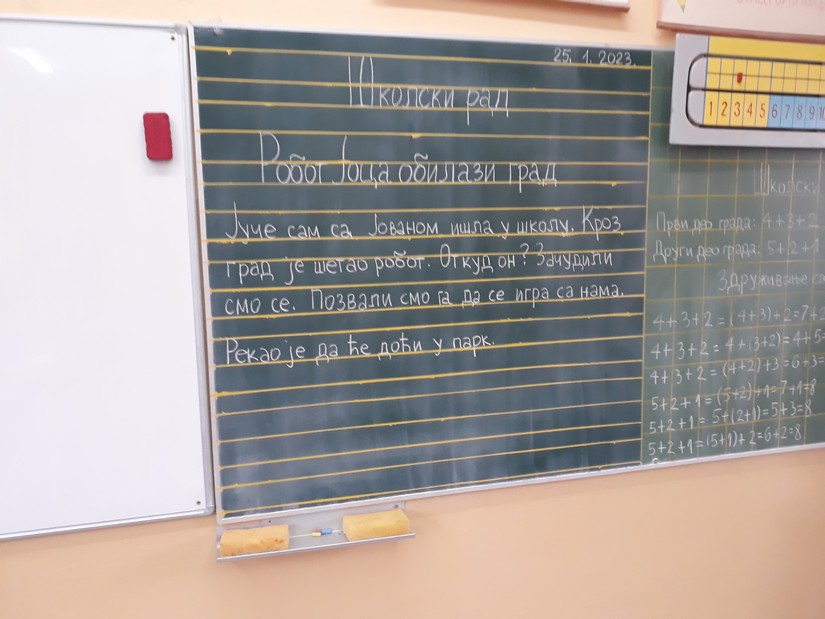 25. 1. 2023.
Школски рад
Робот Јоца обилази град
Јуче сам са Јованом ишла у школу. Кроз
град је шетао робот. Откуд он? Зачудили
смо се. Позвали смо га да се игра са нама.
Рекао је да ће доћи у парк.
1 2 3 4 5 6 7 8 9
Школски
Први део града: 4+3+2
Други део града: 5+2+1
Здруживање
4+3+2=(4+3)+2=7+2
4+3+2=4+(3+2)=4+5
4+3+2=(4+2)+3=6+3=
5+2+1=(5+2)+1=7+1=8
5+2+1=5+(2+1)=5+3=8
5+2+1=(5+1)+2=6+2=8